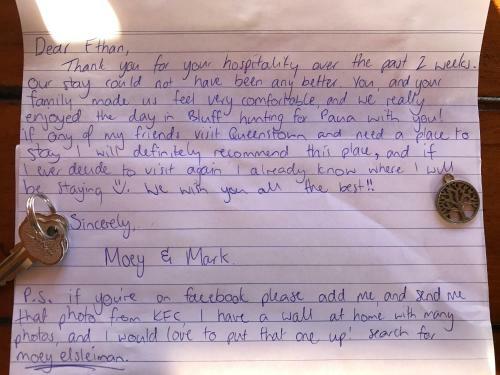 Dear Ethan,
Thank you for your hospitality over the past 2 weeks.
Our stay could not have been any better. You, and your
family made us feel very comfortable, and we really
enjoyed the day in Bluff hunting for Paua with you!
if any of my friends visit Queenstown and need a place to
stay I will definitely recommend this place, and if
I ever decide to visit again I already know where I will
be staying. We wish you all the best!!
Sincerely,
Moey & Mark.
P.S. if you're on facebook please add me, and send me
that photo from KFC, I have a wall at home with many
photos, and I would love to put that one up! search for
moey elsleiman.